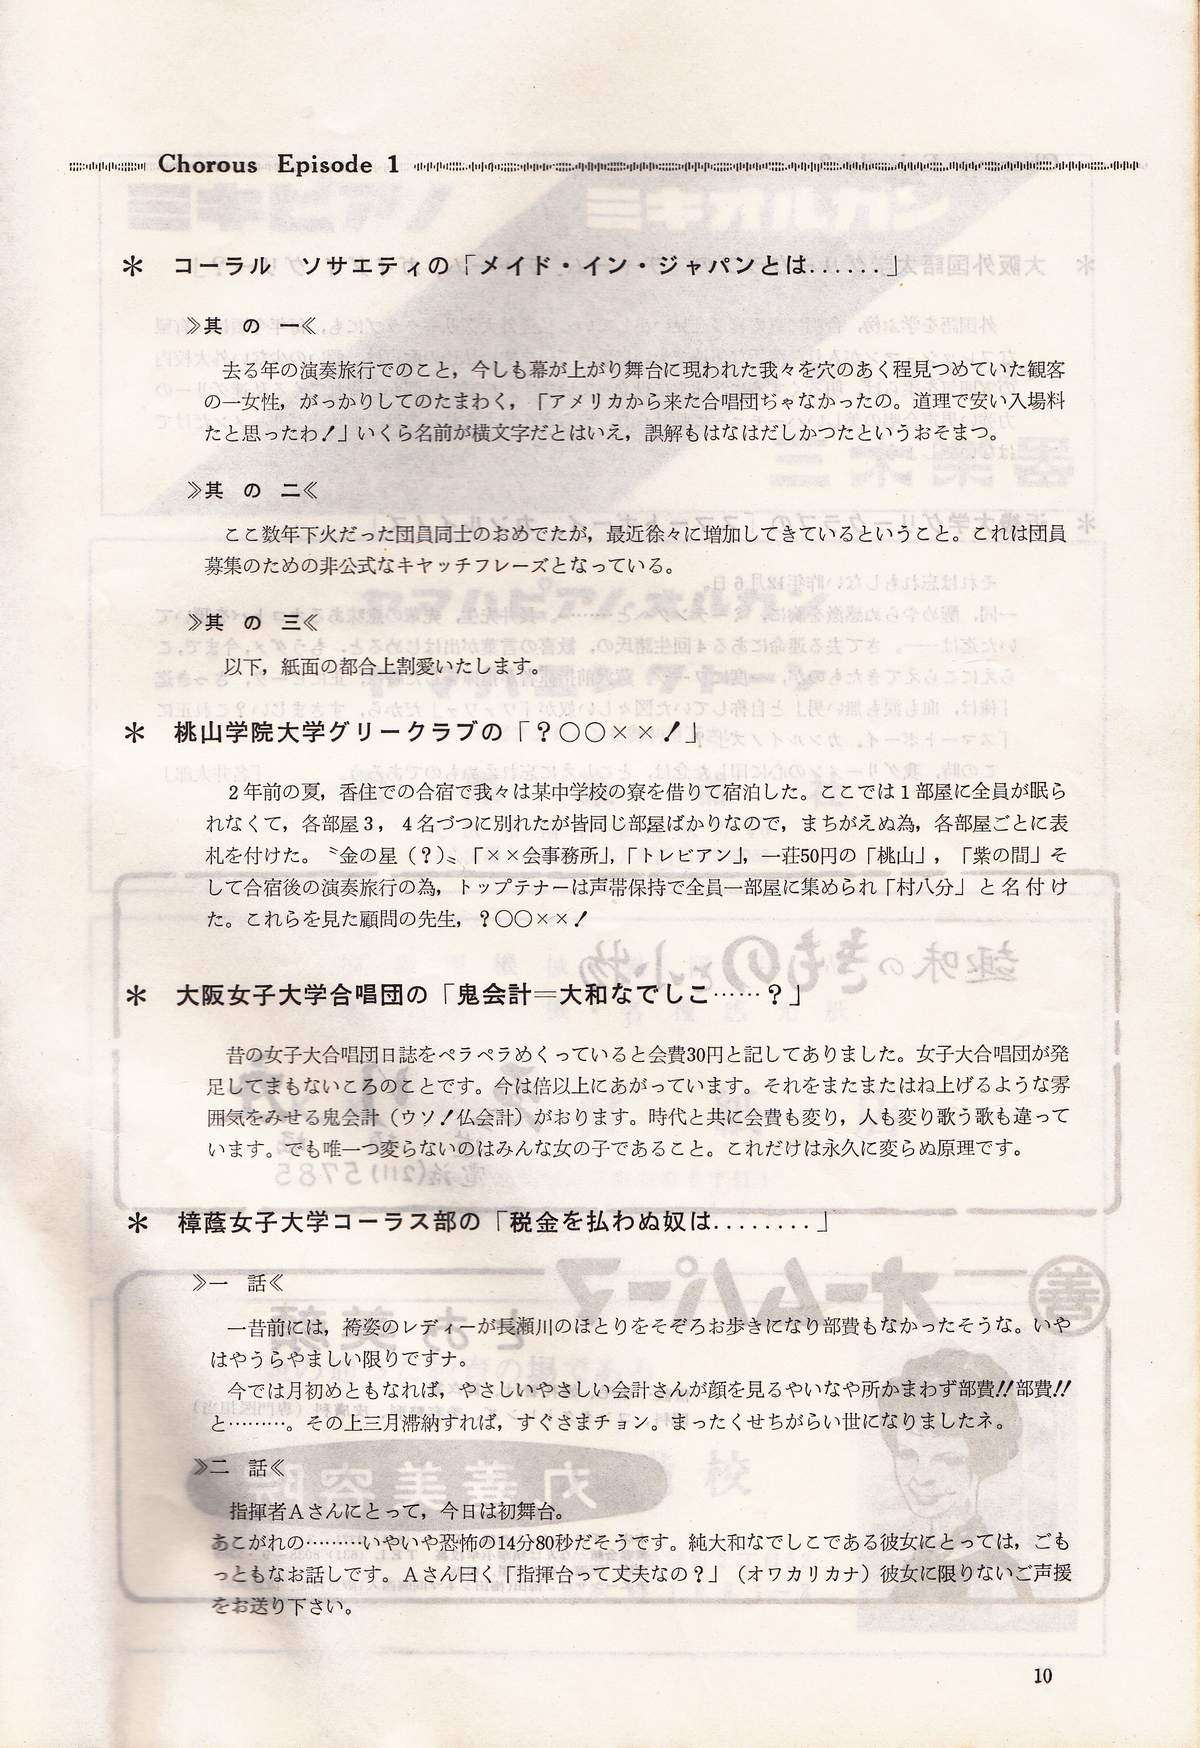 Chorous Episode 1
＊ コーラル ソサエティの「メイド・イン・ジャパンとは......」
≫其 の 一≪
去る年の演奏旅行でのこと，今しも幕が上がり舞台に現われた我々を穴のあく程見つめていた観客
の一女性，がっかりしてのたまわく，「アメリカから来た合唱団ぢゃなかったの。道理で安い入場料
たと思ったわ！」いくら名前が横文字だとはいえ，誤解もはなはだしかつたというおそまつ。
≫其 の 二≪
ここ数年下火だった団員同士のおめでたが，最近徐々に増加してきているということ。これは団員
募集のための非公式なキャッチフレーズとなっている。
≫其 の 三≪
以下，紙面の都合上割愛いたします。
＊ 桃山学院大学グリークラブの「？〇〇××！」
2年前の夏，香住での合宿で我々は某中学校の寮を借りて宿泊した。ここでは1部屋に全員が眠ら
れなくて，各部屋3，4名づつに別れたが皆同じ部屋ばかりなので，まちがえぬ為，各部屋ごとに表
札を付けた。〝金の星（？）〟「××会事務所」，「トレビアン」，一荘50円の「桃山」，「紫の間」そ
して合宿後の演奏旅行の為，トップテナーは声帯保持で全員一部屋に集められ「村八分」と名付け
た。これらを見た顧問の先生，？〇〇××！
＊ 大阪女子大学合唱団の「鬼会計＝大和なでしこ……？」
昔の女子大合唱団日誌をペラペラめくっていると会費30円と記してありました。女子大合唱団が発
足してまもないころのことです。今は倍以上にあがっています。それをまたまたはね上げるような雰
囲気をみせる鬼会計（ウソ！仏会計）がおります。時代と共に会費も変り，人も変り歌う歌も違って
います。でも唯一つ変らないのはみんな女の子であること。これだけは永久に変らぬ原理です。
＊ 樟蔭女子大学コーラス部の「税金を払わぬ奴は........」
≫一 話≪
一昔前には，袴姿のレディーが長瀬川のほとりをそぞろお歩きになり部費もなかったそうな。いや
はやうらやましい限りですナ。
今では月初めともなれば，やさしいやさしい会計さんが顔を見るやいなや所かまわず部費!!部費!!
と………。その上三月滞納すれば，すぐさまチョン。まったくせちがらい世になりましたネ。
≫二 話≪
指揮者Aさんにとって，今日は初舞台。
あこがれの………いやいや恐怖の14分80秒だそうです。純大和なでしこである彼女にとっては，ごも
っともなお話しです。Aさん曰く「指揮台って丈夫なの？」（オワカリカナ）彼女に限りないご声援
をお送り下さい。
10